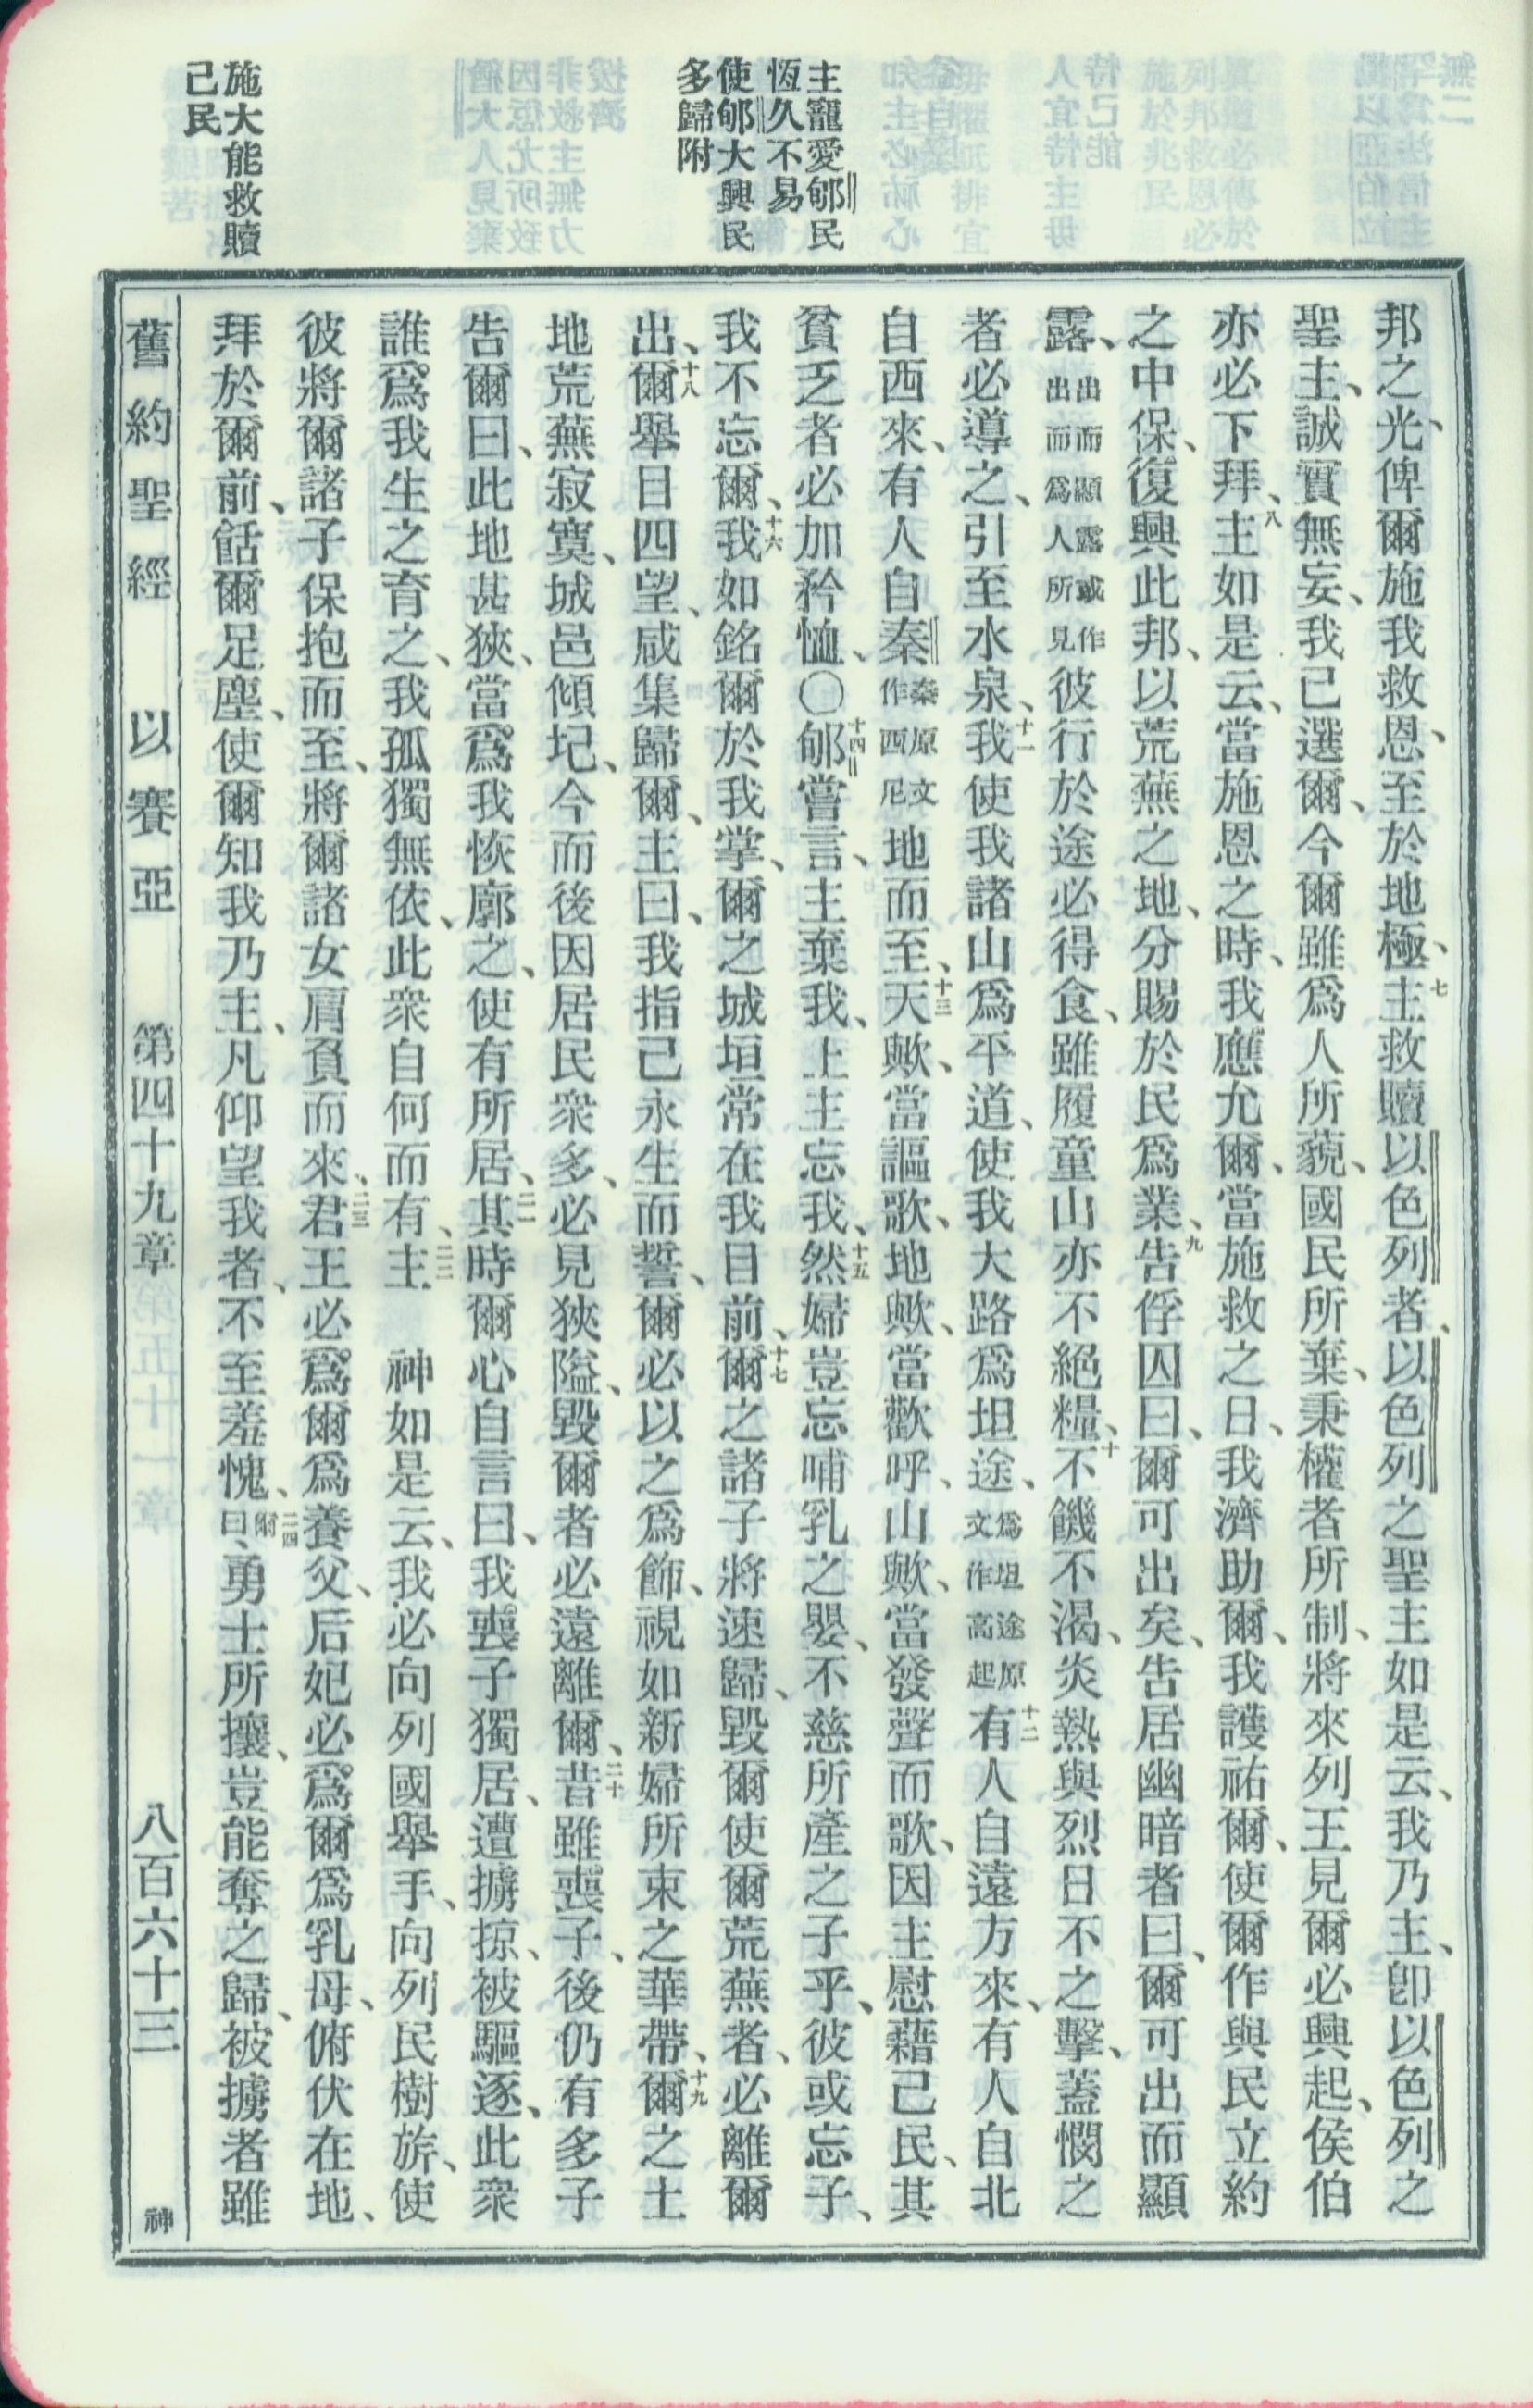 主寵愛郇民
恆久不易
使郇大興民
多歸附
施大能救贖
己民
邦之光、俾爾施我救恩、至於地極、七主救贖以色列者、以色列之聖主如是云、我乃主、卽以色列之
聖主、誠實無妄、我已選爾、今爾雖爲人所藐、國民所棄、秉權者所制、將來列王見爾必興起、侯伯
亦必下拜、八主如是云、當施恩之時、我應允爾、當施救之日、我濟助爾、我護祐爾、使爾作與民立約
之中保、復興此邦、以荒蕪之地、分賜於民爲業、九告俘囚曰、爾可出矣、告居幽暗者曰、爾可出而顯
露、出而顯露或作出而爲人所見彼行於途必得食、雖履童山亦不絕糧、十不饑不渴、炎熱與烈日不之擊、蓋憫之
者必導之、引至水泉、十一我使我諸山爲平道、使我大路爲坦途、爲坦途原文作高起十二有人自遠方來、有人自北
自西來、有人自秦秦原文作西尼地而至、十三天歟、當謳歌、地歟、當歡呼、山歟、當發聲而歌、因主慰藉己民、其
貧乏者必加矜恤、〇十四郇嘗言、主棄我、上主忘我、十五然婦豈忘哺乳之嬰、不慈所產之子乎、彼或忘子、
我不忘爾、十六我如銘爾於我掌、爾之城垣常在我目前、十七爾之諸子將速歸、毀爾使爾荒蕪者、必離爾
出、十八爾舉目四望、咸集歸爾、主曰、我指己永生而誓、爾必以之爲飾、視如新婦所束之華帶、十九爾之土
地荒蕪寂寞、城邑傾圮、今而後因居民衆多、必見狹隘、毀爾者必遠離爾、二十昔雖喪子、後仍有多子
告爾曰、此地甚狹、當爲我恢廓之、使有所居、二一其時爾心自言曰、我喪子獨居、遭擄掠、被驅逐、此衆
誰爲我生之育之、我孤獨無依、此衆自何而有、二二主　神如是云、我必向列國舉手、向列民樹旂、使
彼將爾諸子保抱而至、將爾諸女肩負而來、二三君王必爲爾爲養父、后妃必爲爾爲乳母、俯伏在地、
拜於爾前、餂爾足塵、使爾知我乃主、凡仰望我者、不至羞愧、二四爾曰、勇士所攘、豈能奪之歸、被擄者雖
舊約聖經　以賽亞　第四十九章　八百六十三　神